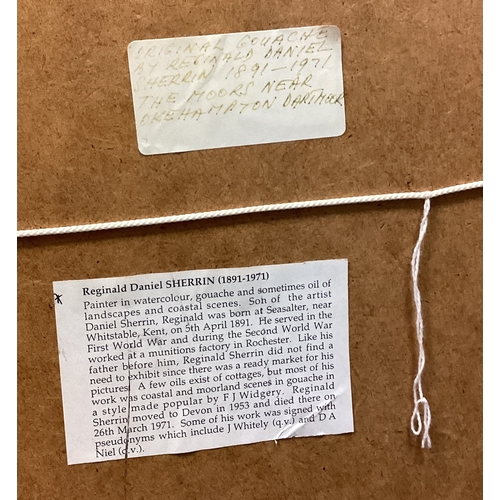 ORIGINAL GOUACHE
BY REGINALD DANIEL
SHERRIN 1891-1971
THE MOORS NEAR
OKEHAMPTON DARTMOOR
Reginald Daniel SHERRIN (1891-1971)
Painter in watercolour, gouache and sometimes oil of
landscapes and coastal scenes. Son of the artist
Daniel Sherrin, Reginald was born at Seasalter, near
Whitstable, Kent, on 5th April 1891. He served in the
First World War and during the Second World War
worked at a munitions factory in Rochester. Like his
father before him, Reginald Sherrin did not find a
need to exhibit since there was a ready market for his
pictures. A few oils exist of cottages, but most of his
work was coastal and moorland scenes in gouache in
a style made popular by F J Widgery. Reginald
Sherrin moved to Devon in 1953 and died there on
26th March 1971. Some of his work was signed with
pseudonyms which include J Whitely (q.v.) and D A
Niel (q.v.).